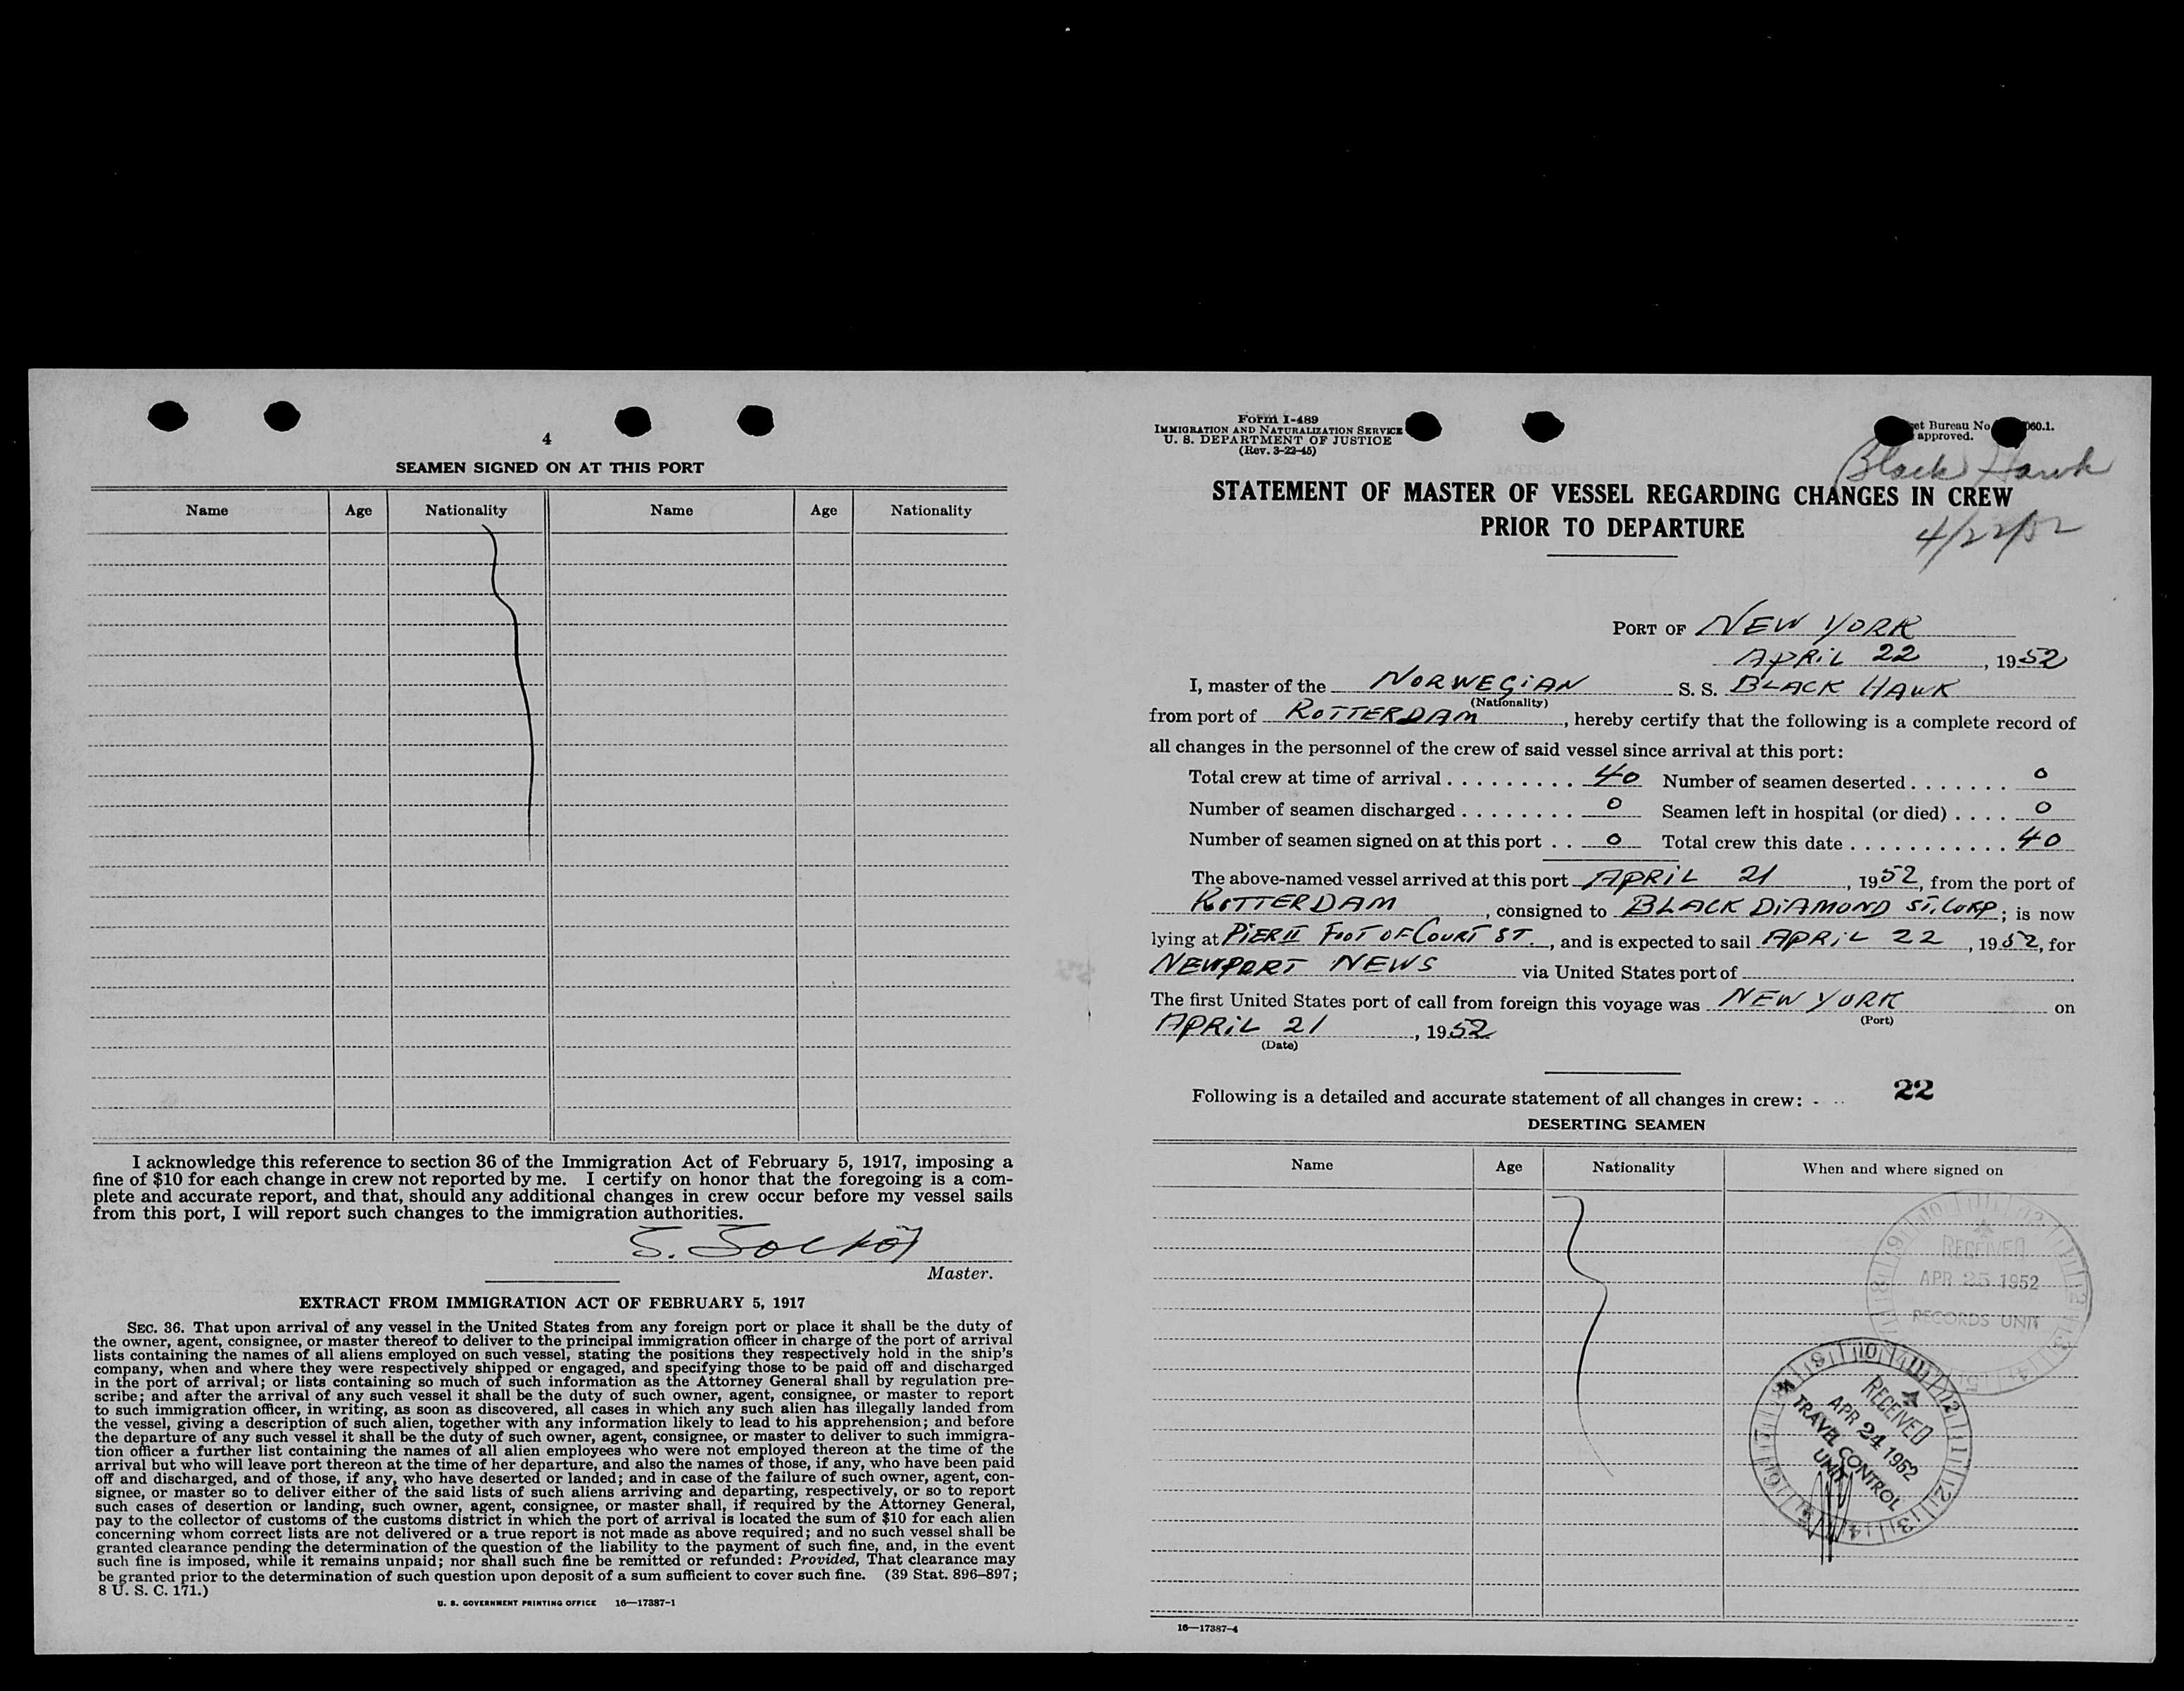 4
SEAMEN SIGNED ON AT THIS PORT
Name Age Nationality Name Age Nationality
I acknowledge this reference to section 36 of the Immigration Act of February 5, 1917, imposing a
fine of $10 for each change in crew not reported by me. I certify on honor that the foregoing is a com-
plete and accurate report, and that, should any additional changes in crew occur before my vessel sails
from this port, I will report such changes to the immigration authorities.
Master.
EXTRACT FROM IMMIGRATION ACT OF FEBRUARY 5, 1917
SEC. 36. That upon arrival of any vessel in the United States from any foreign port or place it shall be the duty of
the owner, agent, consignee, or master thereof to deliver to the principal immigration officer in charge of the port of arrival
lists containing the names of all aliens employed on such vessel, stating the positions they respectively hold in the ship's
company, when and where they were respectively shipped or engaged, and specifying those to be paid off and discharged
in the port of arrival; or lists containing so much of such information as the Attorney General shall by regulation pre-
scribe; and after the arrival of any such vessel it shall be the duty of such owner, agent, consignee, or master to report
to such immigration officer, in writing, as soon as discovered, all cases in which any such alien has illegally landed from
the vessel, giving a description of such alien, together with any information likely to lead to his apprehension; and before
the departure of any such vessel it shall be the duty of such owner, agent, consignee, or master to deliver to such immigra-
tion officer a further list containing the names of all alien employees who were not employed thereon at the time of the
arrival but who will leave port thereon at the time of her departure, and also the names of those, if any, who have been paid
off and discharged, and of those, if any, who have deserted or landed; and in case of the failure of such owner, agent, con-
signee, or master so to deliver either of the said lists of such aliens arriving and departing, respectively, or so to report
such cases of desertion or landing, such owner, agent, consignee, or master shall, if required by the Attorney General,
pay to the collector of customs of the customs district in which the port of arrival is located the sum of $10 for each alien
concerning whom correct lists are not delivered or a true report is not made as above required; and no such vessel shall be
granted clearance pending the determination of the question of the liability to the payment of such fine, and, in the event
such fine is imposed, while it remains unpaid; nor shall such fine be remitted or refunded: Provided, That clearance may
be granted prior to the determination of such question upon deposit of a sum sufficient to cover such fine. (39 Stat. 896–897;
8 U. S. C. 171.)
U. S. GOVERNMENT PRINTING OFFICE 16—17387-1
Form I-489
IMMIGRATION AND NATURALIZATION SERVICE
U. S. DEPARTMENT OF JUSTICE
(Rev. 3-22-45)
et Bureau No 060.1.
approved.
Black Hawk
STATEMENT OF MASTER OF VESSEL REGARDING CHANGES IN CREW
PRIOR TO DEPARTURE
4/22/52
PORT OF NEW YORK
APRIL 22, 1952
I, master of the NORWEGIAN S. S. BLACK HAWK
(Nationality)
from port of ROTTERDAM, hereby certify that the following is a complete record of
all changes in the personnel of the crew of said vessel since arrival at this port:
Total crew at time of arrival 40 Number of seamen deserted 0
Number of seamen discharged 0 Seamen left in hospital (or died) 0
Number of seamen signed on at this port 0 Total crew this date 40
The above-named vessel arrived at this port APRIL 21, 1952, from the port of
ROTTERDAM, consigned to BLACK DIAMOND ST. CORP; is now
lying at PIER II FOOT OF COURT ST., and is expected to sail APRIL 22, 1952, for
NEWPORT NEWS via United States port of
The first United States port of call from foreign this voyage was NEW YORK on
(Port)
APRIL 21, 1952
(Date)
Following is a detailed and accurate statement of all changes in crew: 22
DESERTING SEAMEN
Name Age Nationality When and where signed on
RECEIVED
APR 25 1952
RECORDS UNIT
RECEIVED
APR 24 1952
TRAVEL CONTROL
UNIT
16—17387-4